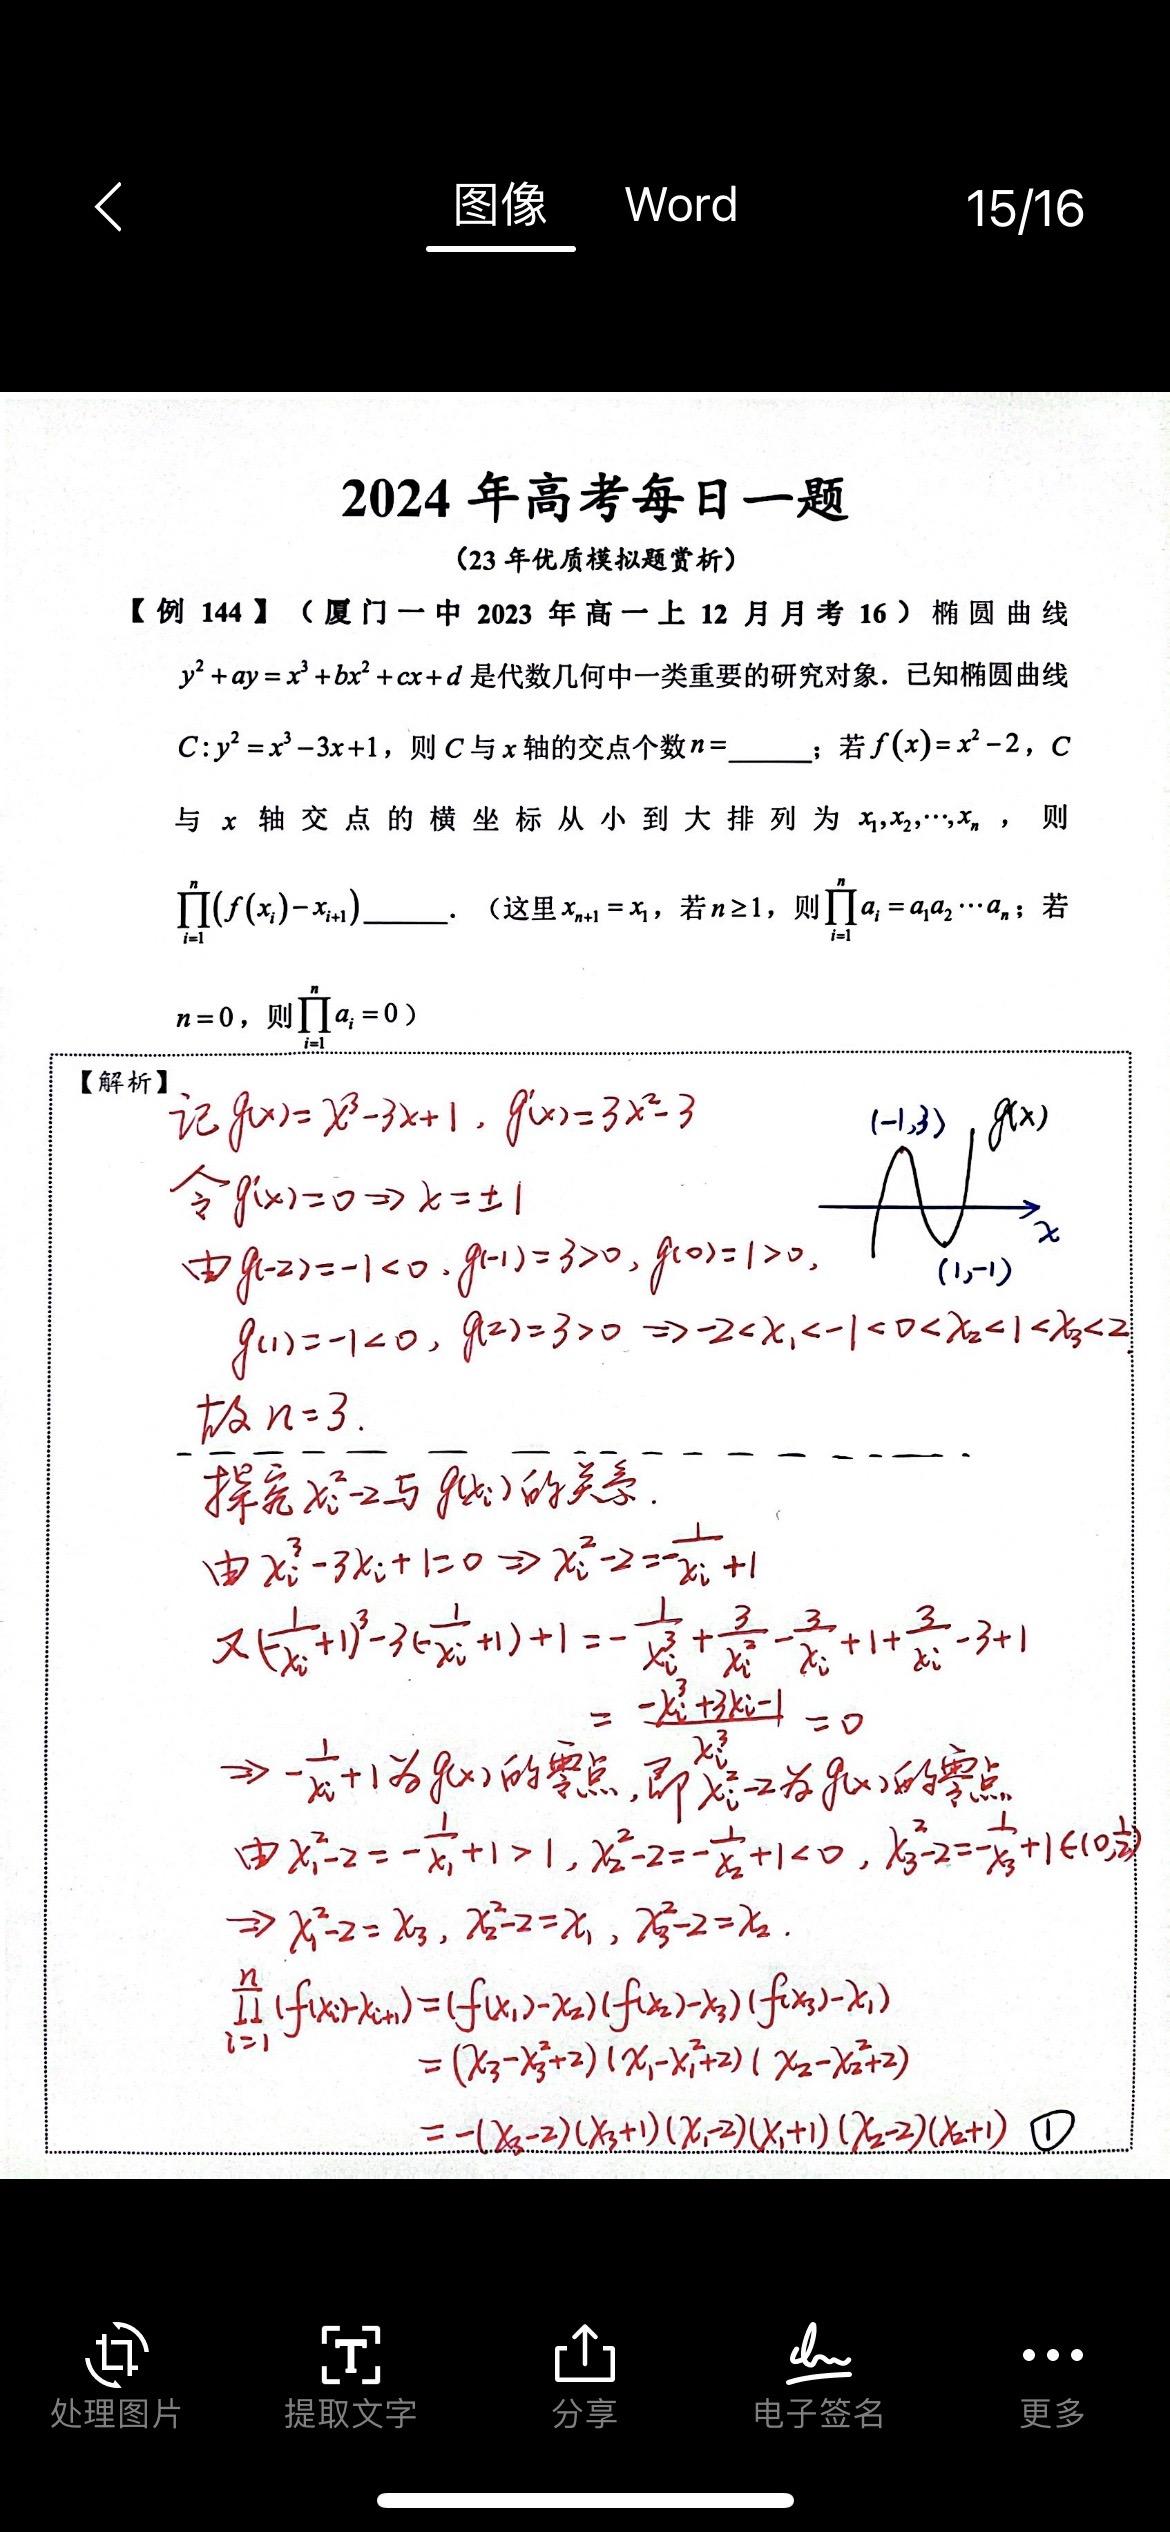 图像 Word 15/16
2024 年高考每日一题
（23 年优质模拟题赏析）
【例 144】（厦门一中 2023 年高一上 12 月月考 16）椭圆曲线
y²+ay=x³+bx²+cx+d 是代数几何中一类重要的研究对象．已知椭圆曲线
C:y²=x³−3x+1，则 C 与 x 轴的交点个数 n=______；若 f(x)=x²−2，C
与 x 轴交点的横坐标从小到大排列为 x₁,x₂,⋯,xₙ，则
∏ᵢ₌₁ⁿ(f(xᵢ)−xᵢ₊₁)______．（这里 xₙ₊₁=x₁，若 n≥1，则∏ᵢ₌₁ⁿ aᵢ=a₁a₂⋯aₙ；若
n=0，则∏ᵢ₌₁ⁿ aᵢ=0）
【解析】
记 g(x)=x³-3x+1，g'(x)=3x²-3
(-1,3) g(x)
令 g'(x)=0 ⇒ x=±1
x
由 g(-2)=-1<0，g(-1)=3>0，g(0)=1>0，
(1,-1)
g(1)=-1<0，g(2)=3>0 ⇒ -2<x₁<-1<0<x₂<1<x₃<2
故 n=3.
探究 xᵢ²-2 与 g(xᵢ) 的关系.
由 xᵢ³-3xᵢ+1=0 ⇒ xᵢ²-2=-1/xᵢ+1
又 (-1/xᵢ+1)³-3(-1/xᵢ+1)+1=-1/xᵢ³+3/xᵢ²-3/xᵢ+1+3/xᵢ-3+1
=(-xᵢ³+3xᵢ-1)/xᵢ³=0
⇒ -1/xᵢ+1 为 g(x) 的零点，即 xᵢ²-2 为 g(x) 的零点
由 x₁²-2=-1/x₁+1>1，x₂²-2=-1/x₂+1<0，x₃²-2=-1/x₃+1∈(0,1/2)
⇒ x₁²-2=x₃，x₂²-2=x₁，x₃²-2=x₂.
∏ᵢ₌₁ⁿ(f(xᵢ)-xᵢ₊₁)=(f(x₁)-x₂)(f(x₂)-x₃)(f(x₃)-x₁)
=(x₃-x₃²+2)(x₁-x₁²+2)(x₂-x₂²+2)
=-(x₃-2)(x₃+1)(x₁-2)(x₁+1)(x₂-2)(x₂+1) ①
处理图片 提取文字 分享 电子签名 更多